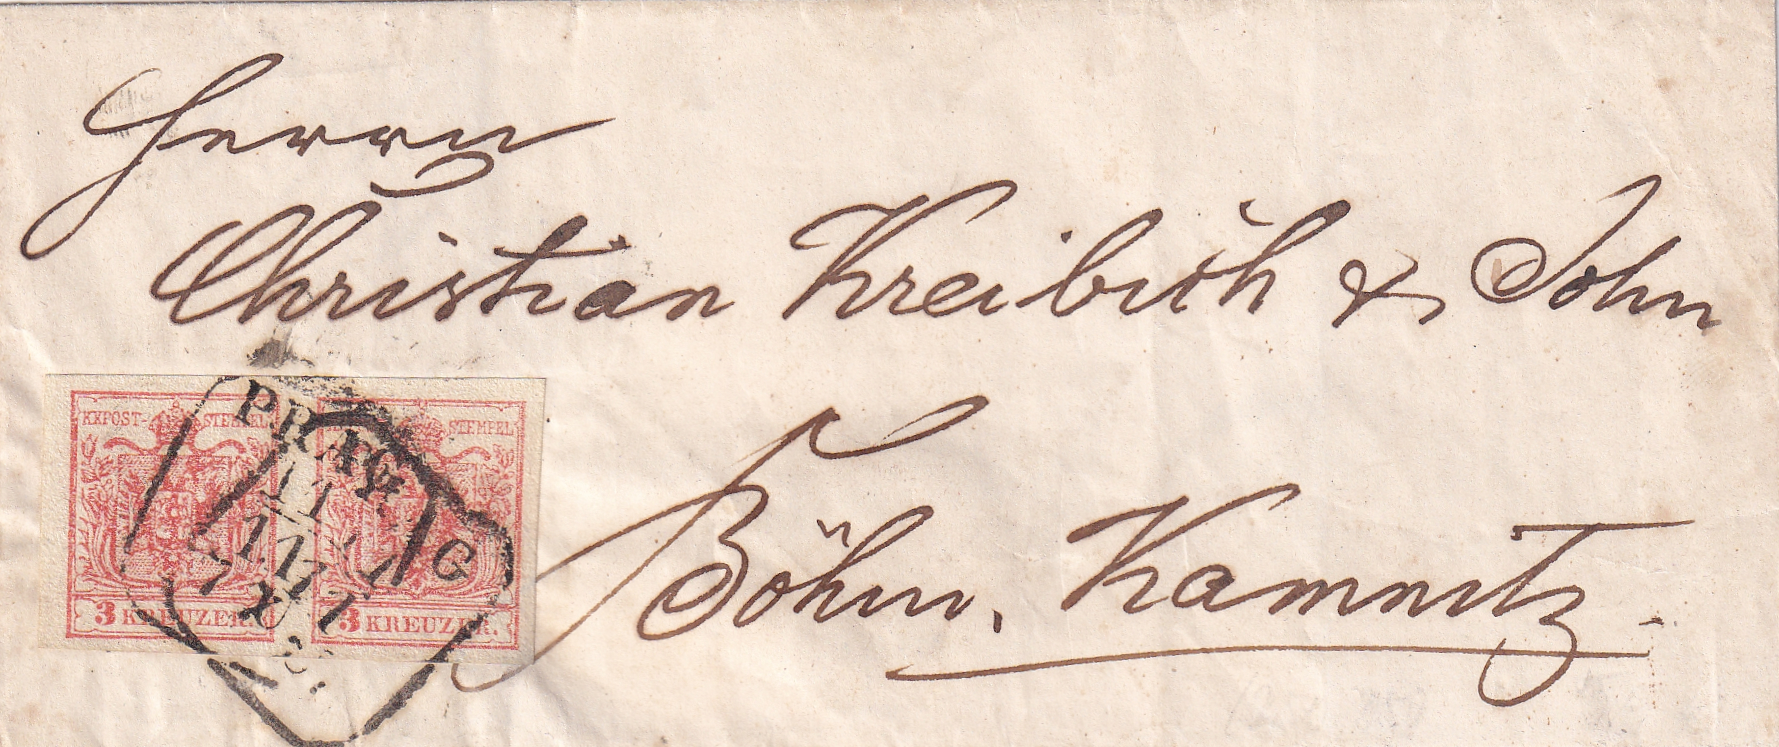 Herrn
Christian Kreibich & John
Böhm. Kamnitz
KKPOST- STEMPEL
3 KREUZER.
STEMPEL
3 KREUZER.
PRAG